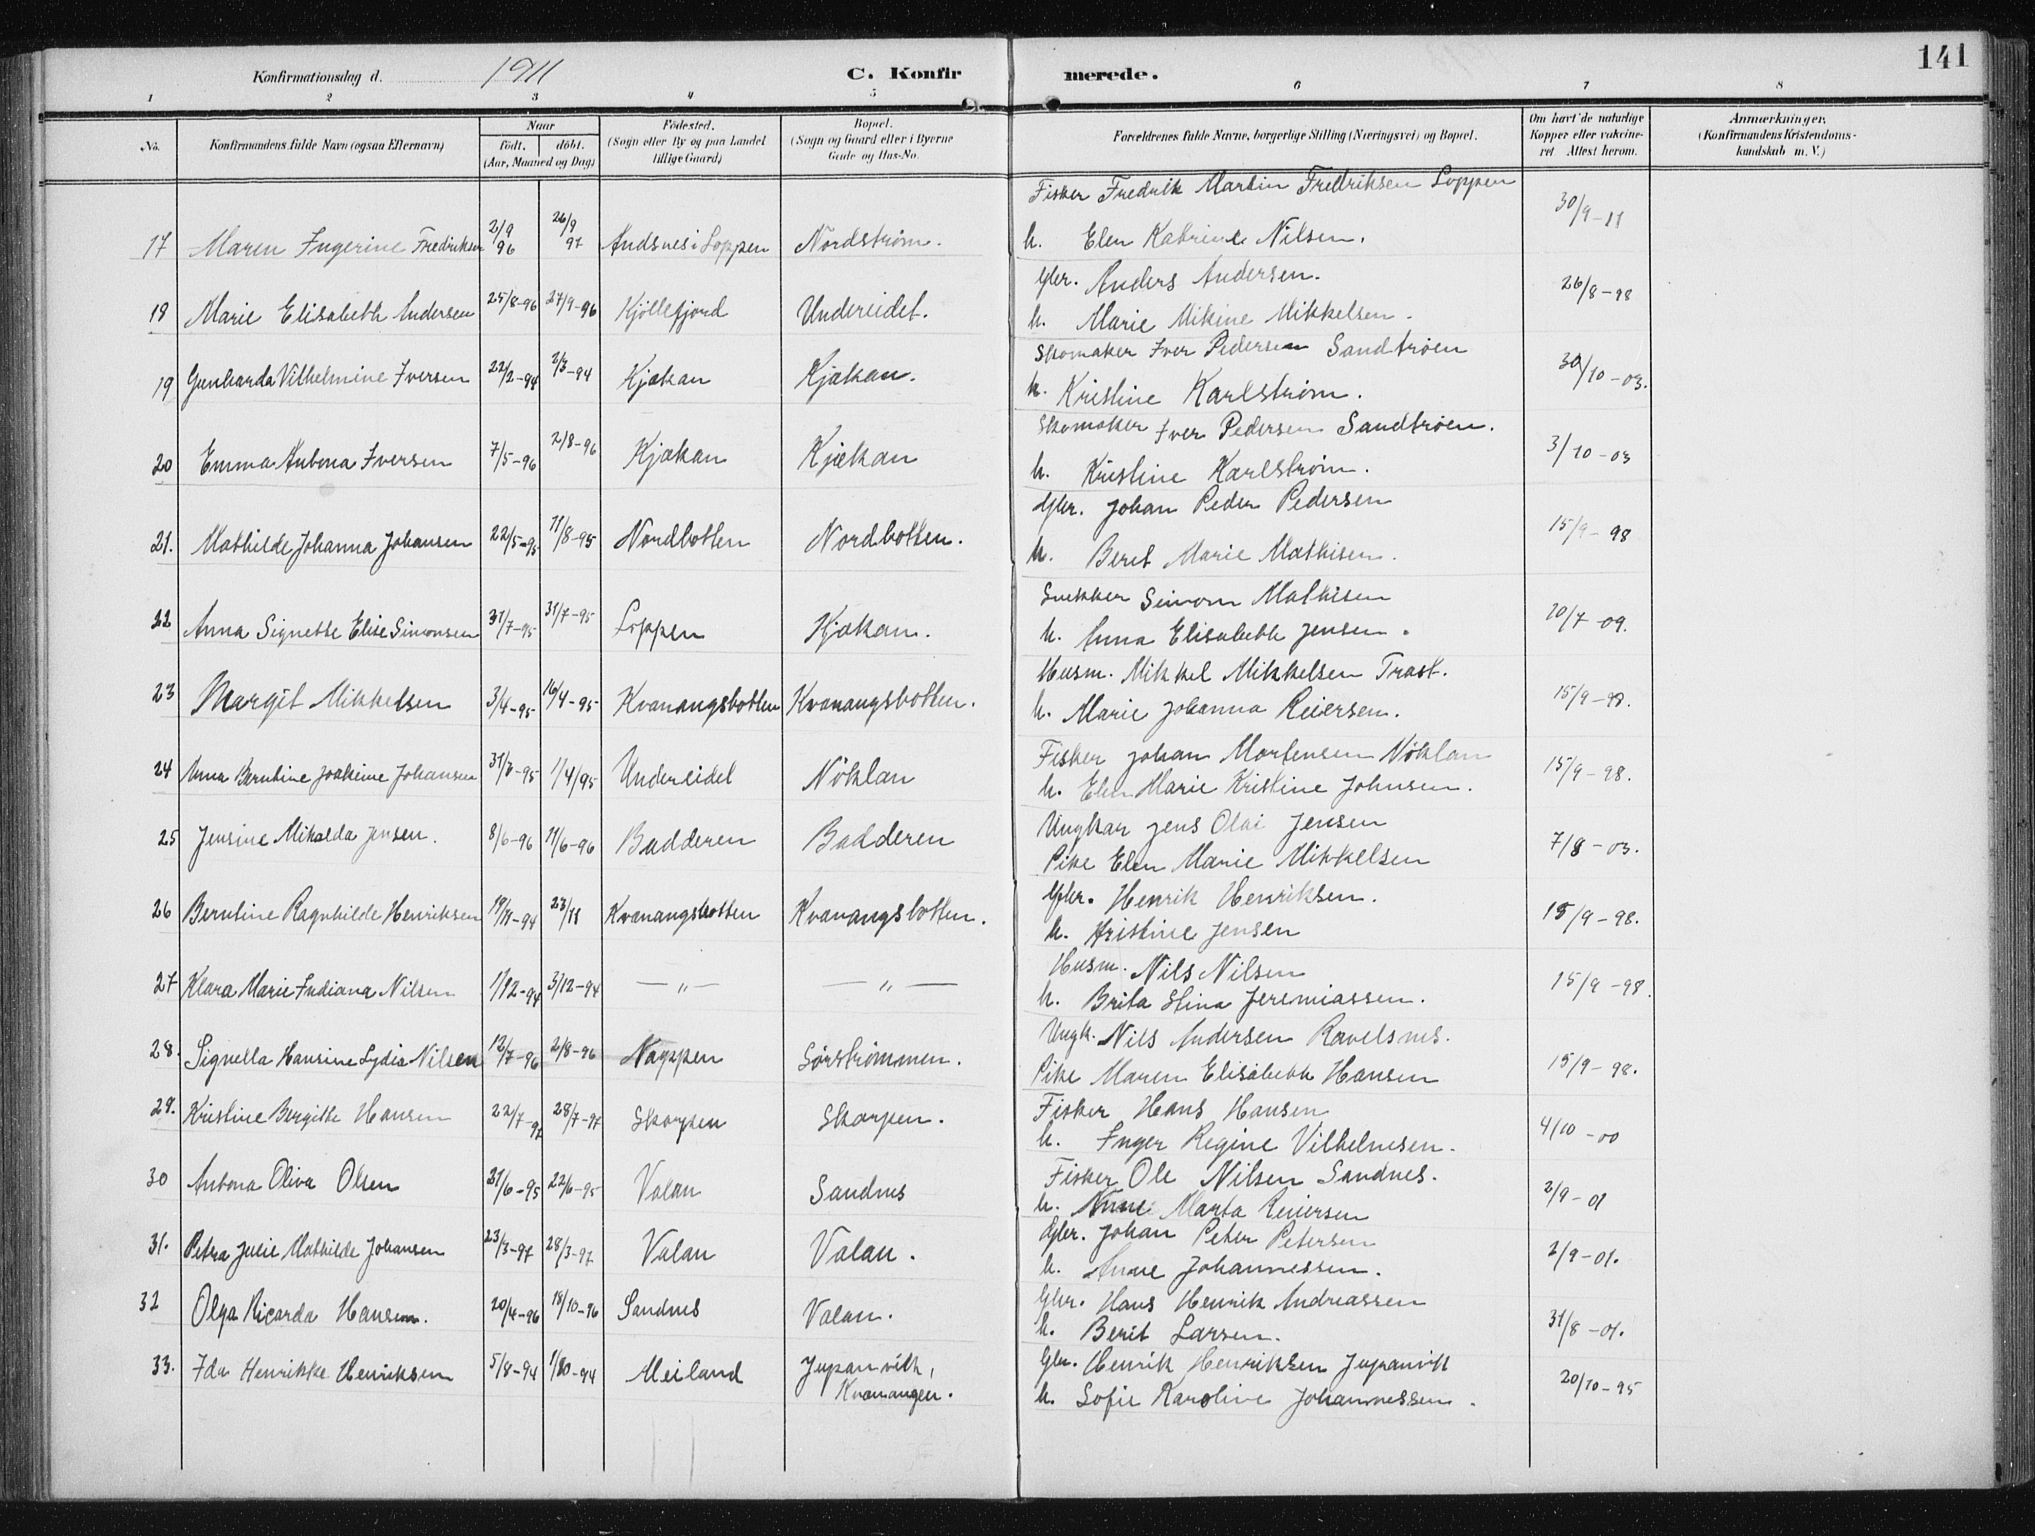 141
Konfirmationsdag d. 1911 C. Konfirmerede.
1 2 3 4 5 6 7 8
No. Konfirmandens fulde Navn (ogsaa Efternavn) Naar født. døbt. (Aar, Maaned og Dag) Fødested. (Sogn eller By og paa Landet tillige Gaard) Bopæl. (Sogn og Gaard eller i Byerne Gade og Hus-No. Forældrenes fulde Navne, borgerlige Stilling (Næringsvei) og Bopæl. Om havt de naturlige Kopper eller vakcineret Attest herom. Anmærkninger. (Konfirmandens Kristendomskundskab m. V.)
Fisker Fredrik Martin Fredriksen Loppen
17 Maren Ingerine Fredriksen 2/9 96 26/9 97 Andsnes i Loppen Nordstrøm. h. Elen Katrine Nilsen. 30/9-11
Gbr. Anders Andersen.
18 Marie Elisabeth Andersen 25/8-96 27/9-96 Kjöllefjord Undereidet. h. Marie Mikine Mikkelsen. 26/8-98
Skomaker Iver Pedersen Sandtrøen
19 Gunharda Vilhelmine Iversen 22/2-94 2/3-94 Kjækan Kjækan. h. Kristine Karlstrøm. 30/10-03.
Skomaker Iver Pedersen Sandtrøen.
20 Emma Antona Iversen 7/5-96 2/8-96 Kjækan Kjækan h. Kristine Karlstrøm. 3/10-03
Gbr. Johan Peder Pedersen
21. Mathilde Johanna Johansen 22/5-95 11/8-95 Nordbotten Nordbotten. h. Beret Marie Mathisen. 15/9-98
Snekker Simon Mathisen
22 Anna Signette Elise Simonsen 31/7-95 31/7-95 Loppen Kjækan. h. Anna Elisabeth Jensen. 20/7-09.
Husm. Mikkel Mikkelsen Trast.
23 Margit Mikkelsen 3/4-95 16/4-95 Kvænangsbotten Kvænangsbotten. h. Marie Johanna Reiersen. 15/9-98.
Fisker Johan Mortensen Nøklan
24 Anna Berntine Joakime Johansen 31/3-95 1/4/95 Undereidet Nöklan h. Elen Marie Kristine Johnsen. 15/9-98.
Ungkar Jens Olai Jensen
25 Jensine Mikalda Jensen. 8/6-96 11/6-96 Badderen Badderen Pike Elen Marie Mikkelsen 7/8-03.
Gbr. Henrik Henriksen.
26 Berntine Ragnhilde Henriksen 19/11-94 23/11 Kvænangsbotten Kvænangsbotten. h. Kristine Jensen 15/9-98.
Husm. Nils Nilsen
27 Klara Marie Indiana Nilsen 1/12-94 3/12-94 — „ — — „ — h. Brita Stina Jeremiassen. 15/9-98.
Ungk. Nils Andersen Ravelsnes.
28. Signella Hansine Lydia Nilsen 12/7-96 2/8-96 Nappen Sørstrømmen. Pike Maren Elisabeth Hansen 15/9-98.
Fisker Hans Hansen
29. Kristine Bergitte Hansen 22/7-97 28/7-97 Skorpen Skorpen. h. Inger Regine Vilhelmsen. 4/10-00
Fisker Ole Nilsen Sandnes.
30 Antona Oliva Olsen 21/6-95 22/6-95 Valan Sandnes h. Anne Marta Reiersen 2/9-01
Gbr. Johan Peter Petersen
31. Petra Julie Mathilde Johansen 23/3-97 28/3-97 Valan Valan. h. Anne Johannessen. 2/9-01.
Gbr. Hans Henrik Andreassen
32 Olga Ricarda Hansen. 20/4-96 18/10-96 Sandnes Valan. h. Berit Larsen. 31/8-01.
Gbr. Henrik Henriksen Jupanvik
33. Ida Henrikke Henriksen 5/8-94 1/10-94 Meiland Jupanvik, Kvænangen. h. Sofie Karoline Johannessen. 20/10-95